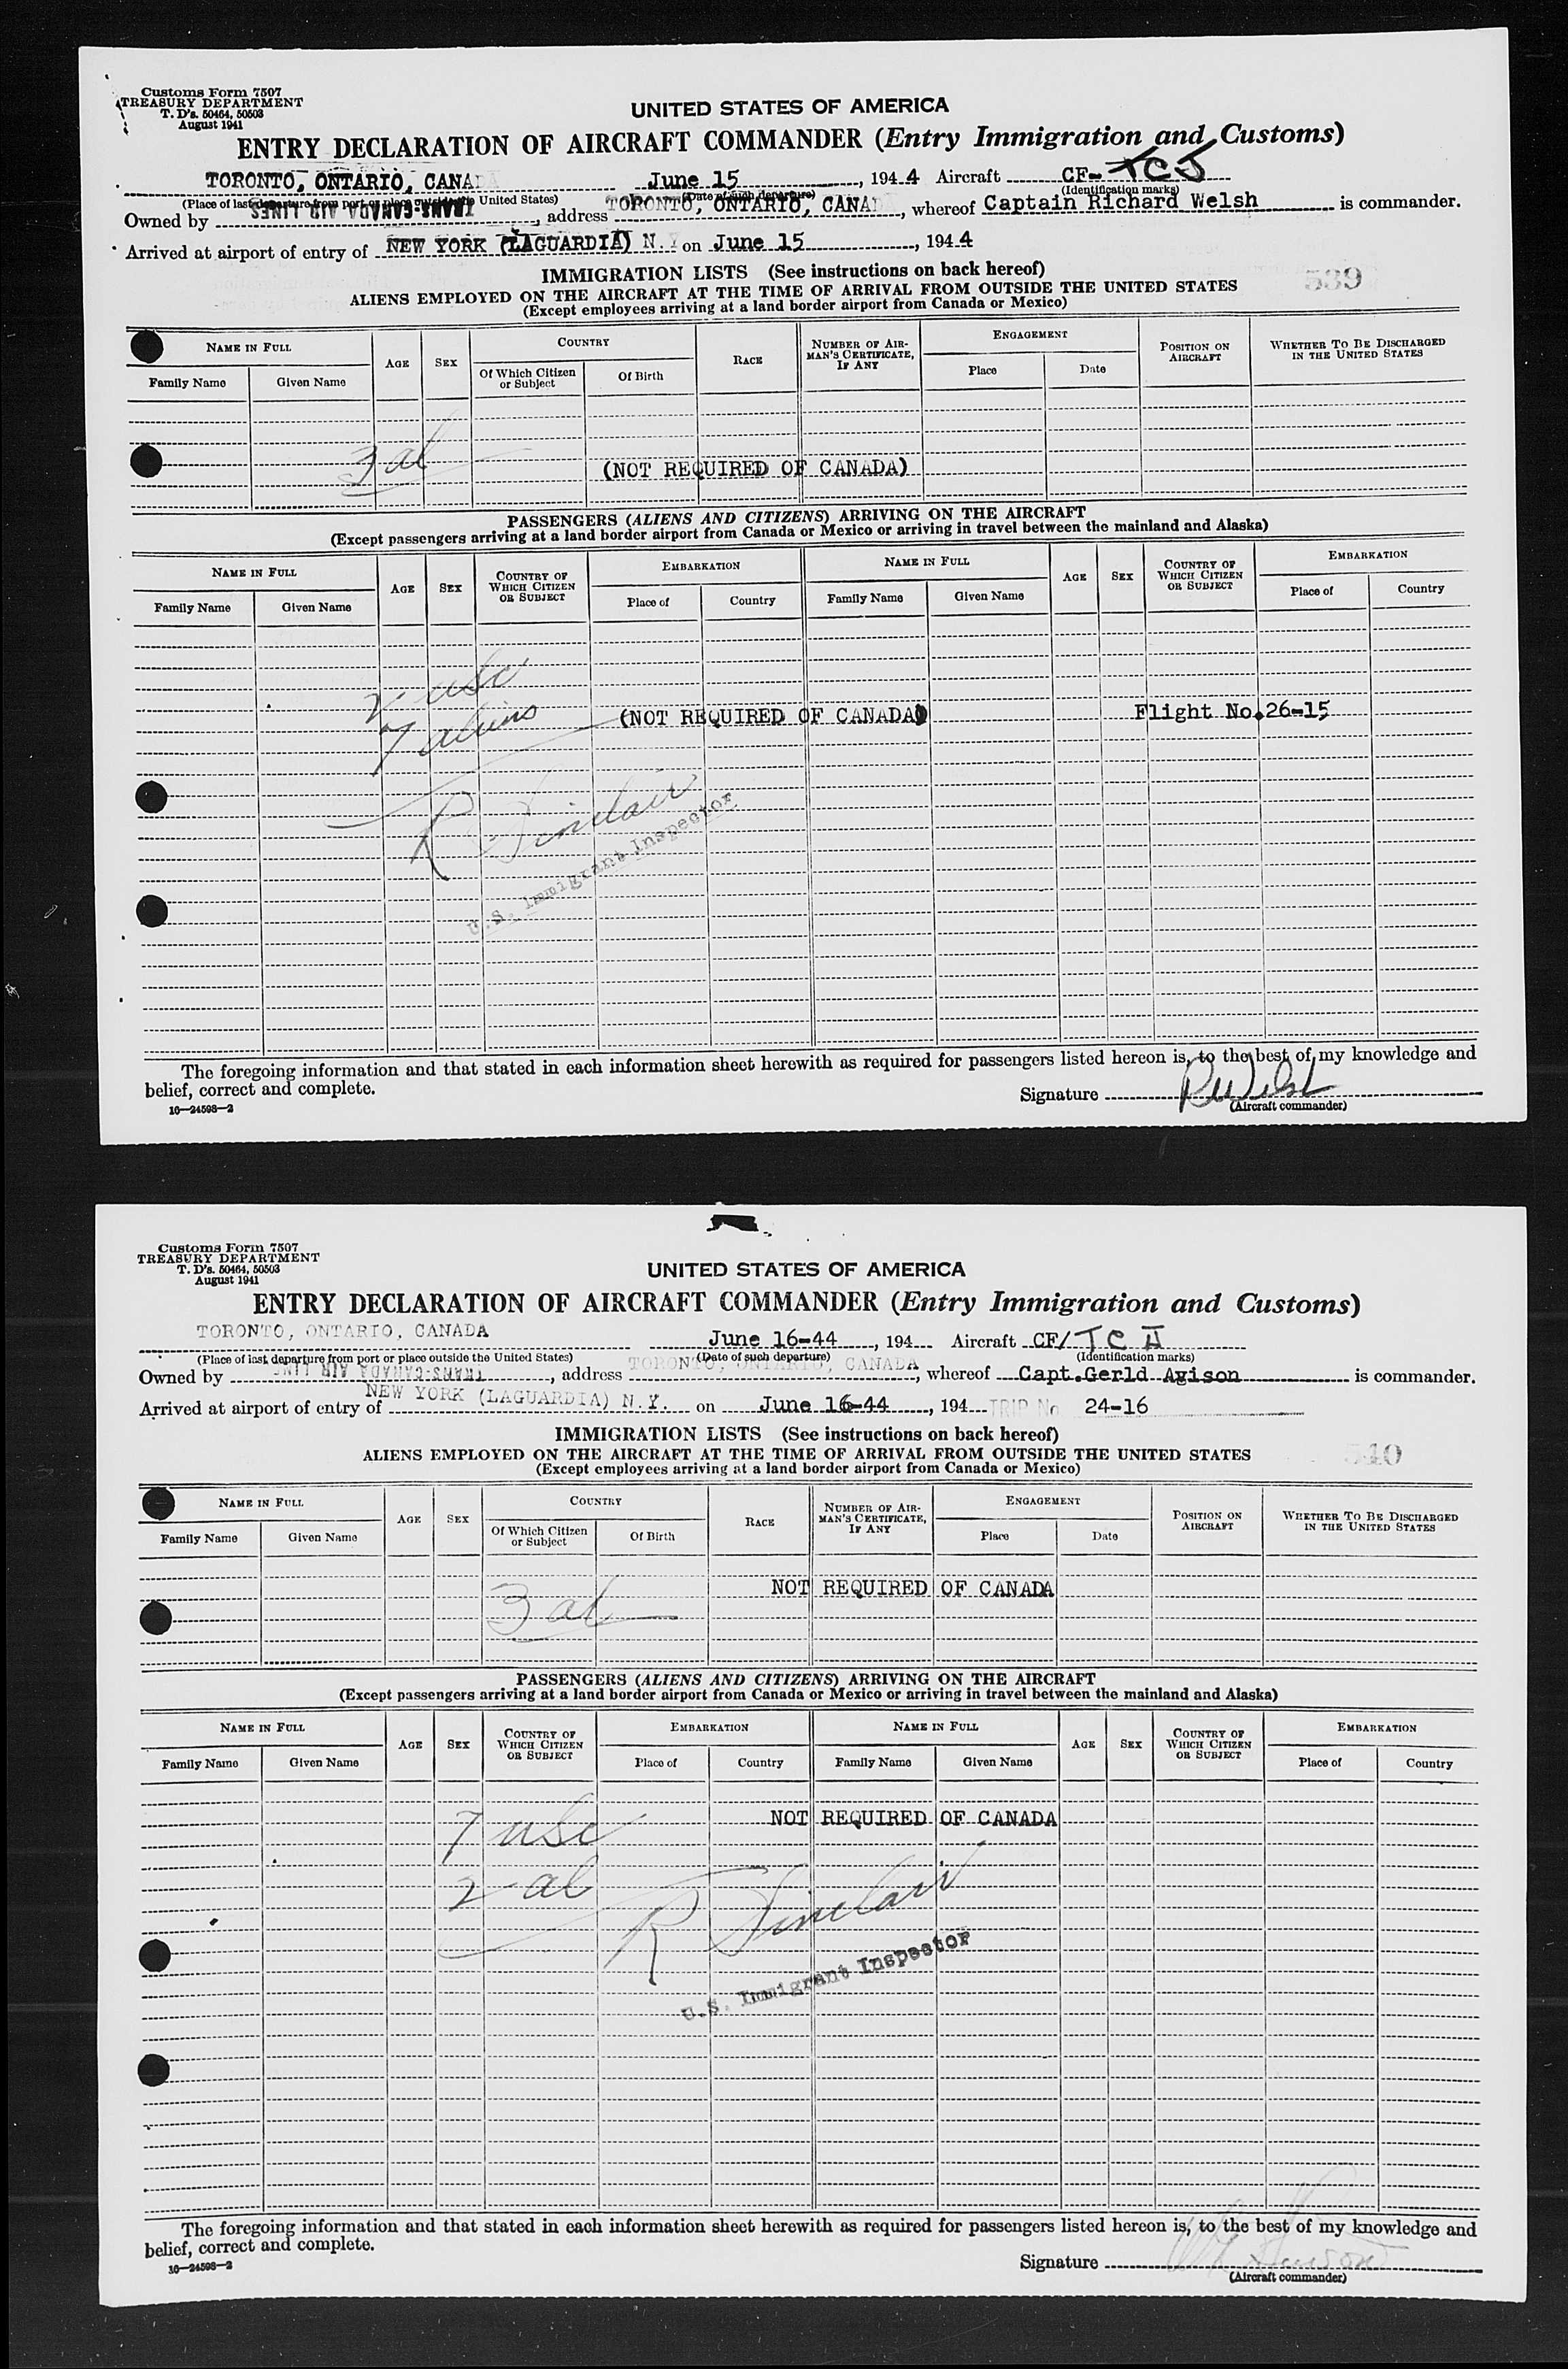 Customs Form 7507
TREASURY DEPARTMENT
T. D's. 50464, 50503
August 1941
UNITED STATES OF AMERICA
ENTRY DECLARATION OF AIRCRAFT COMMANDER (Entry Immigration and Customs)
TORONTO, ONTARIO, CANA June 15, 194 4 Aircraft CF-TCJ
(Place of last departure from port or place outside the United States) (Date of such departure) (Identification marks)
Owned by TRANS-CANADA AIR LINES, address TORONTO, ONTARIO, CANA, whereof Captain Richard Welsh is commander.
Arrived at airport of entry of NEW YORK (LAGUARDIA) N. Y on June 15, 194 4
IMMIGRATION LISTS (See instructions on back hereof)
539
ALIENS EMPLOYED ON THE AIRCRAFT AT THE TIME OF ARRIVAL FROM OUTSIDE THE UNITED STATES
(Except employees arriving at a land border airport from Canada or Mexico)
NAME IN FULL AGE SEX COUNTRY RACE NUMBER OF AIRMAN'S CERTIFICATE, IF ANY ENGAGEMENT POSITION ON AIRCRAFT WHETHER TO BE DISCHARGED IN THE UNITED STATES
Family Name Given Name Of Which Citizen or Subject Of Birth Place Date
3 al
(NOT REQUIRED OF CANADA)
PASSENGERS (ALIENS AND CITIZENS) ARRIVING ON THE AIRCRAFT
(Except passengers arriving at a land border airport from Canada or Mexico or arriving in travel between the mainland and Alaska)
NAME IN FULL AGE SEX COUNTRY OF WHICH CITIZEN OR SUBJECT EMBARKATION NAME IN FULL AGE SEX COUNTRY OF WHICH CITIZEN OR SUBJECT EMBARKATION
Family Name Given Name Place of Country Family Name Given Name Place of Country
2 usc
7 aliens
(NOT REQUIRED OF CANADA) Flight No.26-15
R Sinclair
U.S. Immigrant Inspector
The foregoing information and that stated in each information sheet herewith as required for passengers listed hereon is, to the best of my knowledge and
belief, correct and complete.
Signature R Welsh
16—24598—2 (Aircraft commander)
Customs Form 7507
TREASURY DEPARTMENT
T. D's. 50464, 50503
August 1941
UNITED STATES OF AMERICA
ENTRY DECLARATION OF AIRCRAFT COMMANDER (Entry Immigration and Customs)
TORONTO, ONTARIO, CANADA June 16-44, 194 Aircraft CF/
(Place of last departure from port or place outside the United States) (Date of such departure) (Identification marks)
Owned by TRANS-CANADA AIR LINE, address TORONTO, ONTARIO, CANADA, whereof Capt.Gerld Agison is commander.
Arrived at airport of entry of NEW YORK (LAGUARDIA) N.Y. on June 16-44, 194 TRIP No 24-16
IMMIGRATION LISTS (See instructions on back hereof)
540
ALIENS EMPLOYED ON THE AIRCRAFT AT THE TIME OF ARRIVAL FROM OUTSIDE THE UNITED STATES
(Except employees arriving at a land border airport from Canada or Mexico)
NAME IN FULL AGE SEX COUNTRY RACE NUMBER OF AIRMAN'S CERTIFICATE, IF ANY ENGAGEMENT POSITION ON AIRCRAFT WHETHER TO BE DISCHARGED IN THE UNITED STATES
Family Name Given Name Of Which Citizen or Subject Of Birth Place Date
NOT REQUIRED OF CANADA
3 al
PASSENGERS (ALIENS AND CITIZENS) ARRIVING ON THE AIRCRAFT
(Except passengers arriving at a land border airport from Canada or Mexico or arriving in travel between the mainland and Alaska)
NAME IN FULL AGE SEX COUNTRY OF WHICH CITIZEN OR SUBJECT EMBARKATION NAME IN FULL AGE SEX COUNTRY OF WHICH CITIZEN OR SUBJECT EMBARKATION
Family Name Given Name Place of Country Family Name Given Name Place of Country
NOT REQUIRED OF CANADA
7 usc
2 al
R Sinclair
U.S. Immigrant Inspector
The foregoing information and that stated in each information sheet herewith as required for passengers listed hereon is, to the best of my knowledge and
belief, correct and complete.
Signature
16—24598—2 (Aircraft commander)